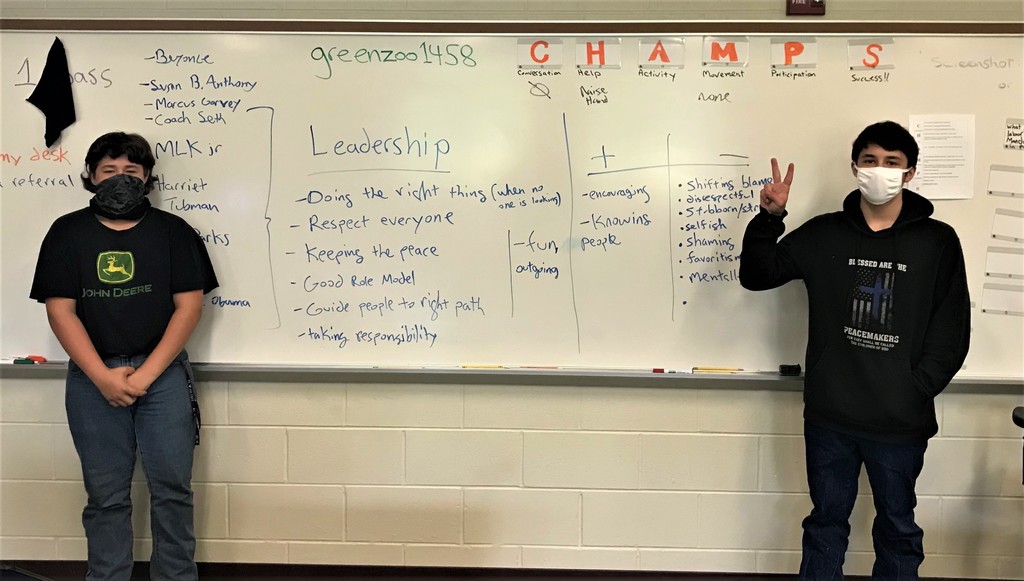 1 pass
my desk
referral
- Beyonce
- Susan B. Anthony
- Marcus Garvey
- Coach Seth
MLK jr
Harriet
Tubman
arks
Obama
greenzoo1458
Leadership
- Doing the right thing (when no
one is looking)
- Respect everyone
- Keeping the peace
- Good Role Model
- Guide people to right path
- taking responsibility
- fun,
outgoing
C H A M P S
Conversation
Help
Raise
Hand
Activity
Movement
none
Participation
Success!!
+
- encouraging
- Knowing
people
—
• Shifting blame
• disrespectful
• stubborn/
• selfish
• shaming
• favoritism
• mentall
•
Screenshot
What
JOHN DEERE
BLESSED ARE THE
PEACEMAKERS
FOR THEY SHALL BE CALLED
THE CHILDREN OF GOD
FIRE